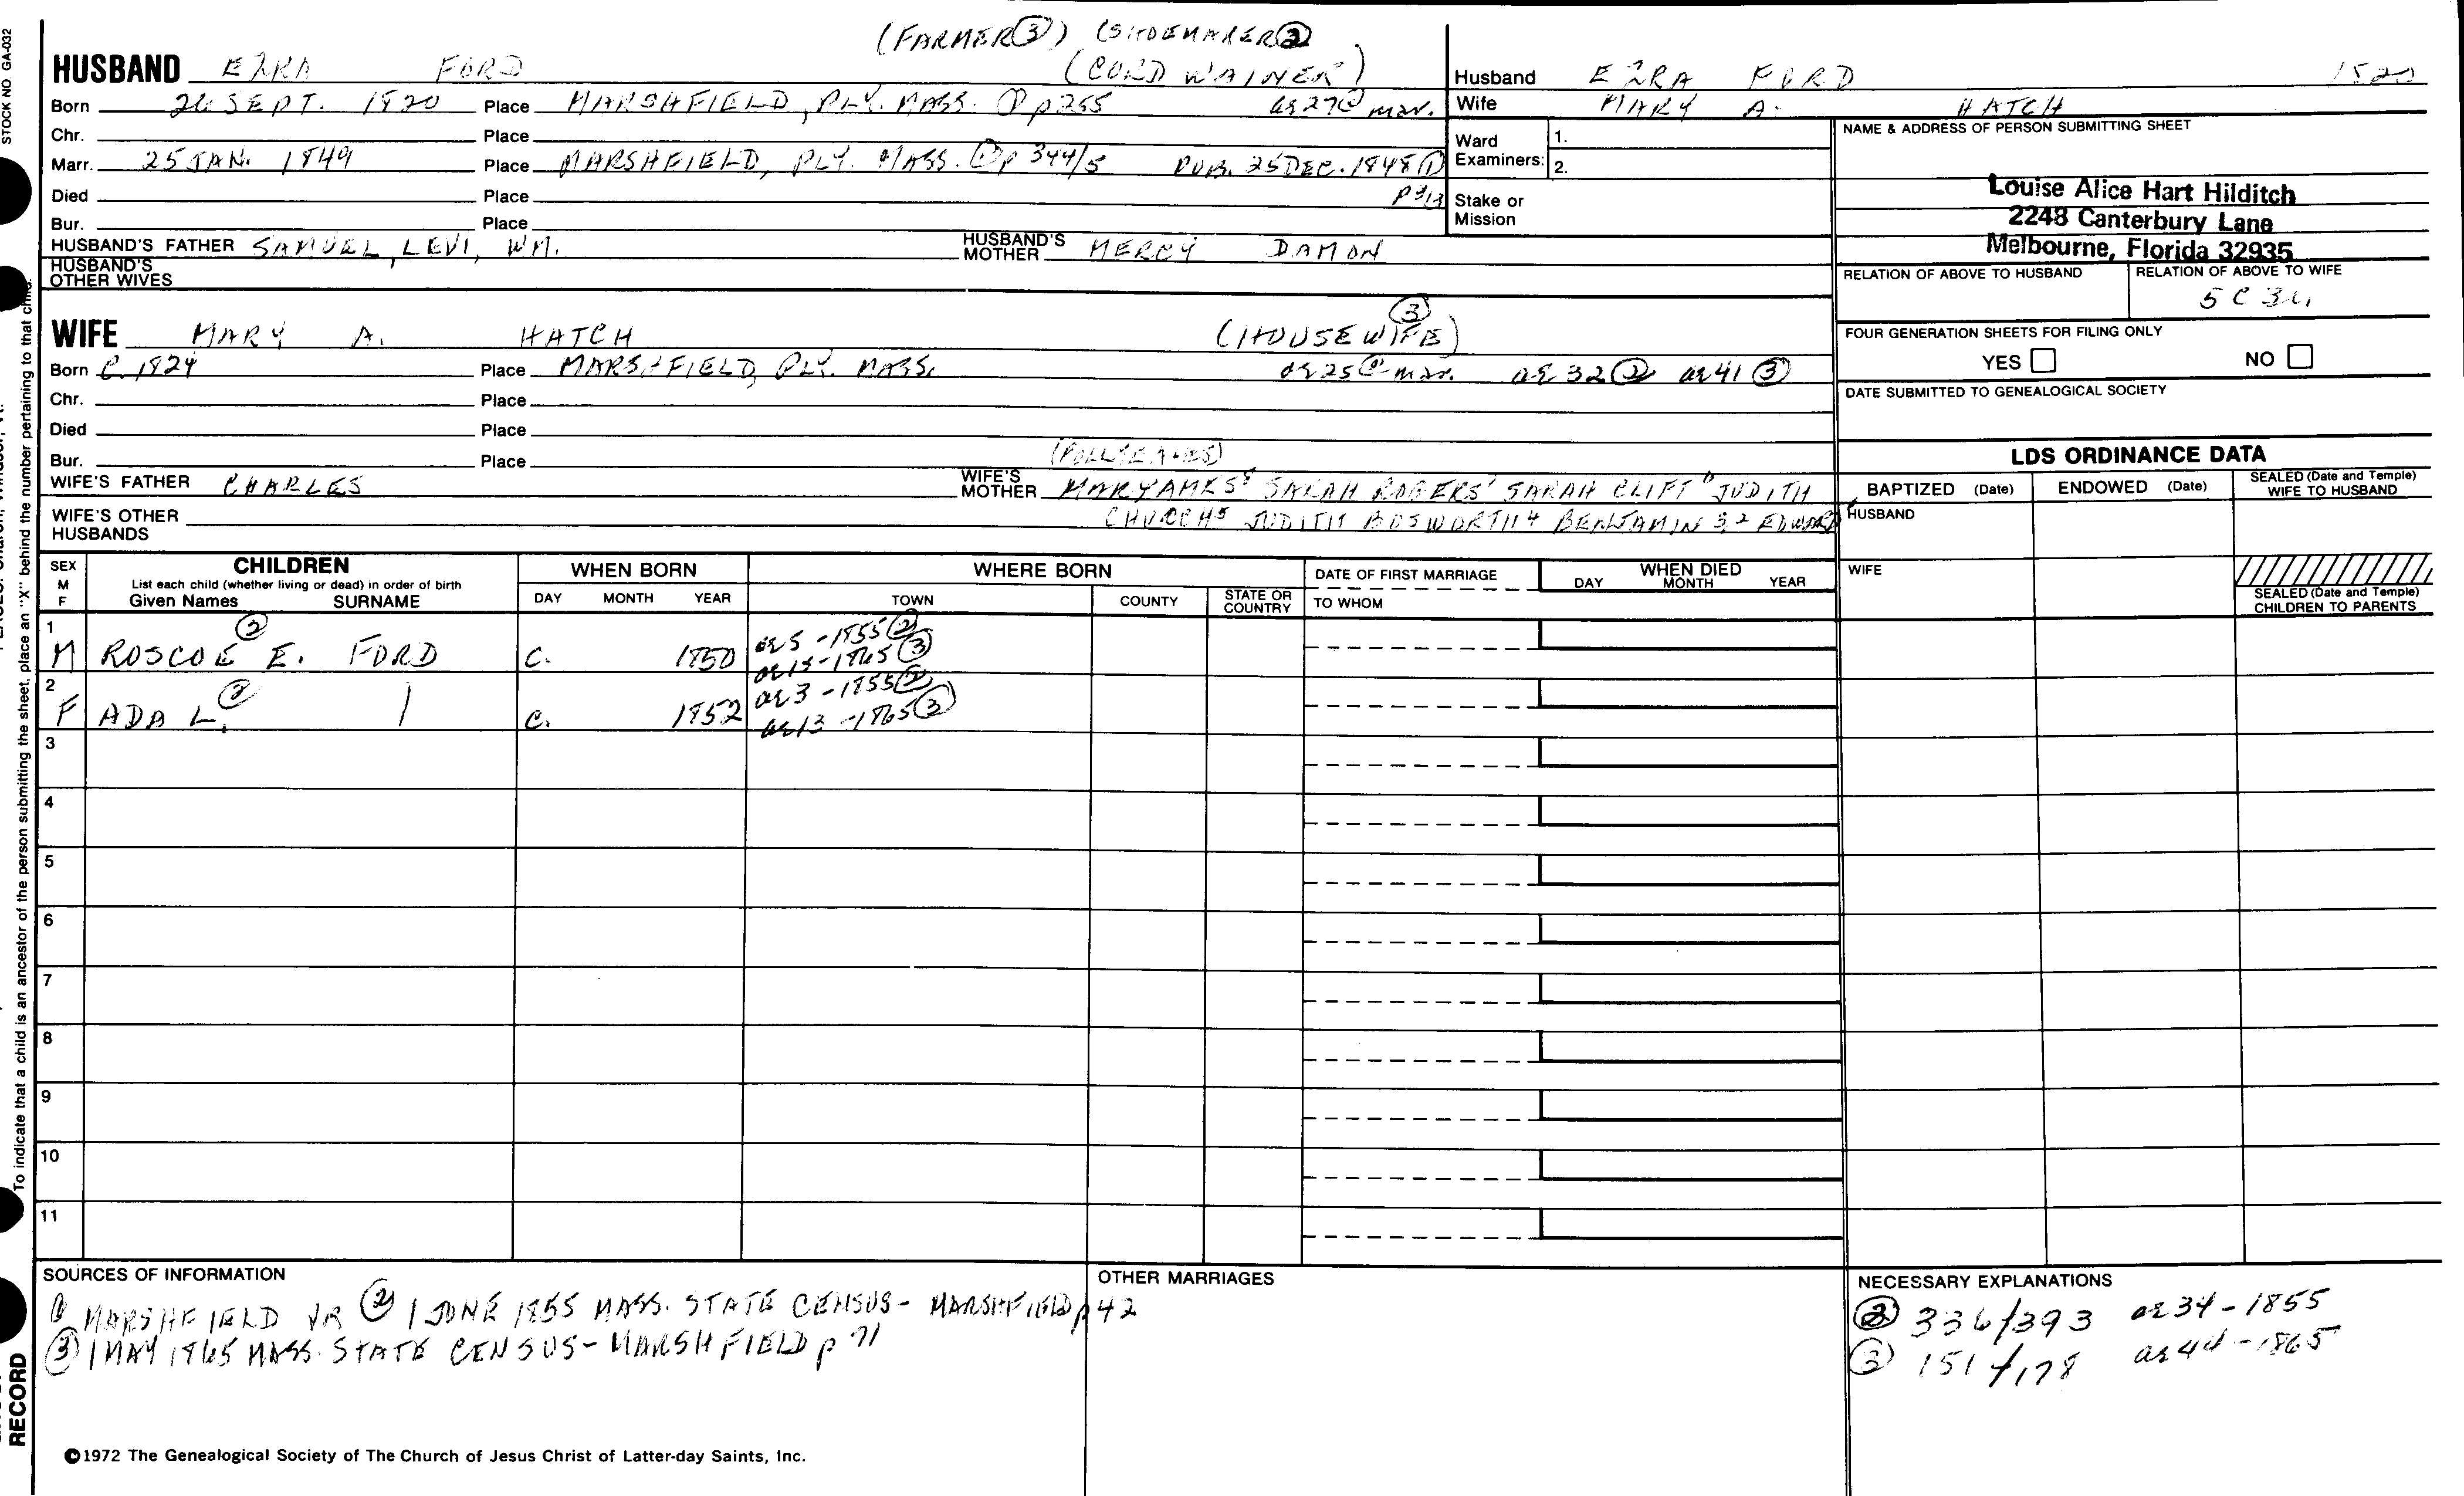 STOCK NO. GA-032
(FARMER ③) (SHOEMAKER ②)
HUSBAND EZRA FORD (CORDWAINER)
Born 26 SEPT. 1820 Place MARSHFIELD, PLY. MASS. ① p255 ae 27 @ mar.
Chr. Place
Marr. 25 JAN. 1849 Place MARSHFIELD, PLY. MASS. ① p 344/5 PUB. 25 DEC. 1848 ①
Died Place
Bur. Place
HUSBAND'S FATHER SAMUEL, LEVI, WM. HUSBAND'S MOTHER MERCY DAMON
HUSBAND'S OTHER WIVES
Husband EZRA FORD 1820
Wife MARY A. HATCH
Ward Examiners: 1.
2.
Stake or Mission
NAME & ADDRESS OF PERSON SUBMITTING SHEET
Louise Alice Hart Hilditch
2248 Canterbury Lane
Melbourne, Florida 32935
RELATION OF ABOVE TO HUSBAND RELATION OF ABOVE TO WIFE
5C3
FOUR GENERATION SHEETS FOR FILING ONLY
YES NO
DATE SUBMITTED TO GENEALOGICAL SOCIETY
WIFE MARY A. HATCH (HOUSEWIFE) ③
Born C. 1824 Place MARSHFIELD, PLY. MASS. ae 25 @ mar. ae 32 ② ae 41 ③
Chr. Place
Died Place
Bur. Place
(POLLY EAMES)
WIFE'S FATHER CHARLES WIFE'S MOTHER MARY AMES SARAH ROGERS SARAH CLIFT JUDITH
WIFE'S OTHER HUSBANDS CHURCH5 JUDITH BOSWORTH4 BENJAMIN 3,2 EDWARD
LDS ORDINANCE DATA
BAPTIZED (Date) ENDOWED (Date) SEALED (Date and Temple) WIFE TO HUSBAND
HUSBAND
WIFE
SEALED (Date and Temple) CHILDREN TO PARENTS
SEX M F CHILDREN WHEN BORN WHERE BORN DATE OF FIRST MARRIAGE WHEN DIED
List each child (whether living or dead) in order of birth
Given Names SURNAME DAY MONTH YEAR TOWN COUNTY STATE OR COUNTRY TO WHOM DAY MONTH YEAR
1 M ROSCOE E. ② FORD C. 1850 ae 5 - 1855 ②
ae 15 - 1865 ③
2 F ADA L. ② | C. 1852 ae 3 - 1855 ②
ae 13 - 1865 ③
3
4
5
6
7
8
9
10
11
SOURCES OF INFORMATION
① MARSHFIELD VR ② 1 JUNE 1855 MASS. STATE CENSUS - MARSHFIELD p 42
③ 1 MAY 1865 MASS. STATE CENSUS - MARSHFIELD p 71
OTHER MARRIAGES
NECESSARY EXPLANATIONS
② 336/393 ae 34 - 1855
③ 151/178 ae 44 - 1865
To indicate that a child is an ancestor of the person submitting the sheet, place an "X" behind the number pertaining to that child.
RECORD
©1972 The Genealogical Society of The Church of Jesus Christ of Latter-day Saints, Inc.